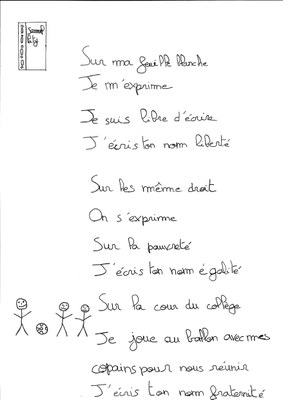 Sur ma feuille blanche
Je m'exprime
Je suis libre d'écrire
J'écris ton nom liberté
Sur les même droit
On s'exprime
Sur la pauvreté
J'écris ton nom égalité
Sur la cour du collège
Je joue au ballon avec mes
copains pour nous réunir
J'écris ton nom fraternité